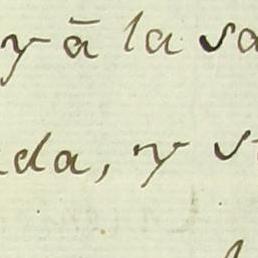 y à la sa
da, y s